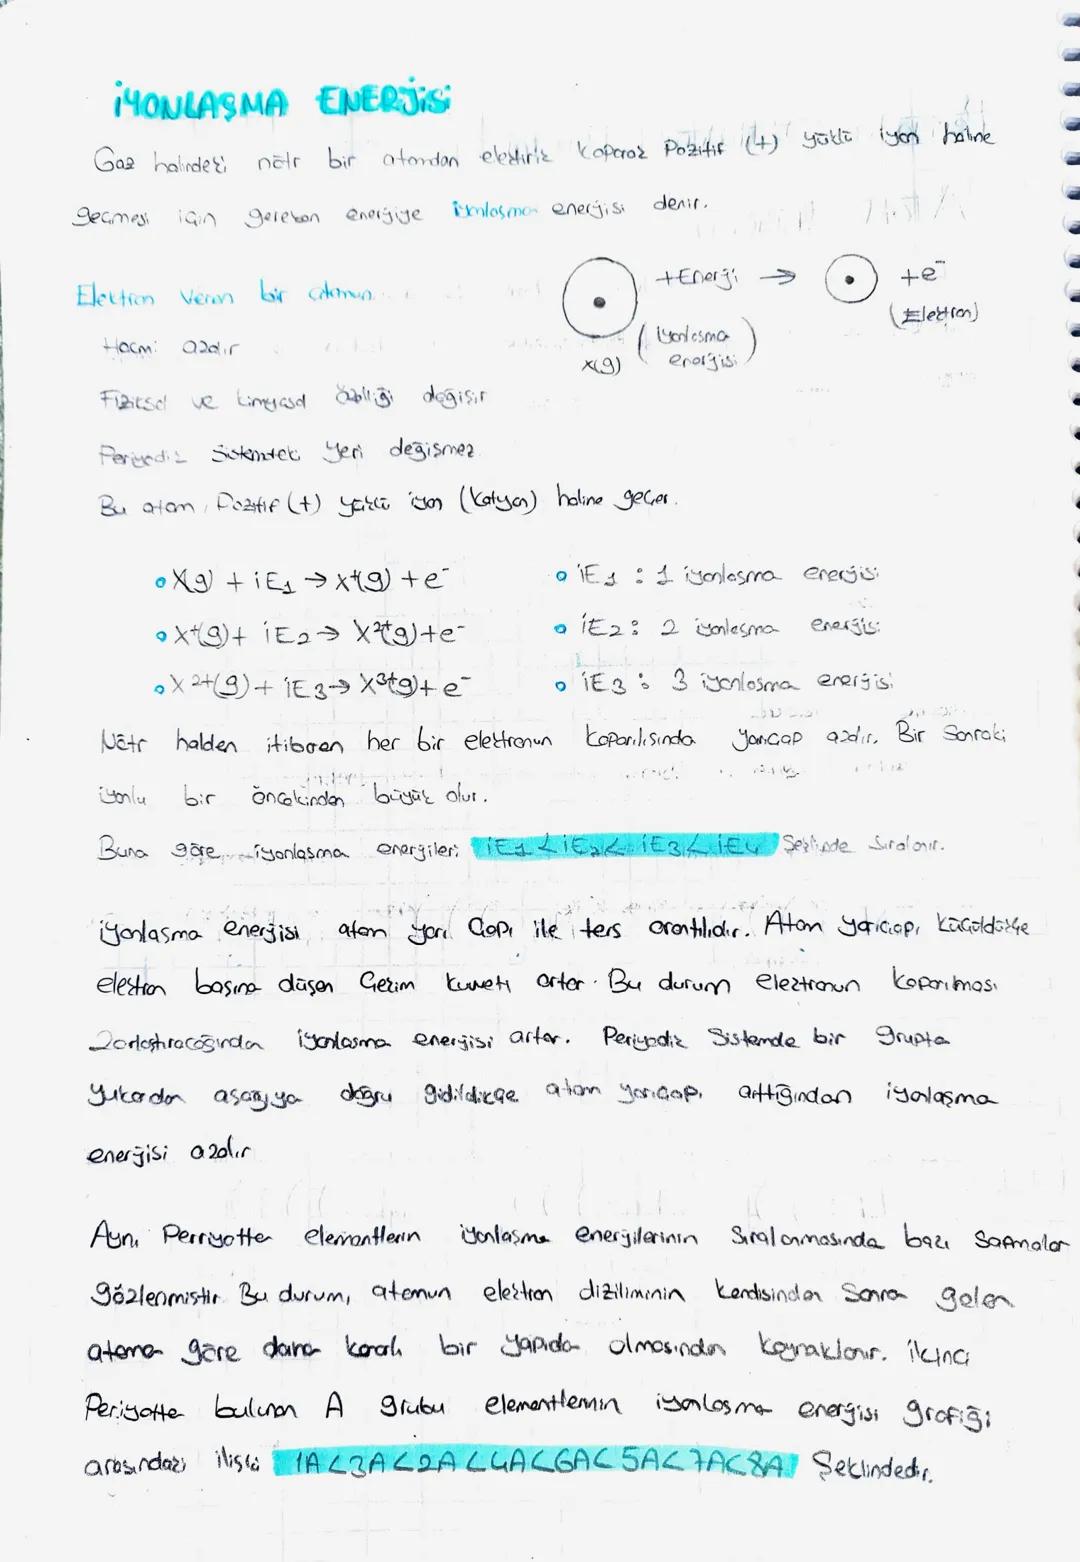 İYONLAŞMA ENERJİSİ
Gaz halindeki nötr bir atomdan elektirik koparak Pozitif (+) yüklü iyon haline
geçmesi için gereken energiye iyonlaşma energisi denir.
Elektron Veren bir atomun
+Enerji → +e⁻
(Elektron)
Hacmi azalır
(iyonlaşma
energisi)
X(g)
Fiziksel ve kimyasal özelliği değişir
Periyodik Sistemdeki yeri değişmez
Bu atom, Pozitif (+) yüklü iyon (katyon) haline geçer.
X(g) + İE₁ → X⁺(g) + e⁻
İE₁ : 1 iyonlaşma energisi
X⁺(g) + İE₂ → X²⁺(g) + e⁻
İE₂ : 2 iyonlaşma energisi
X²⁺(g) + İE₃ → X³⁺(g) + e⁻
İE₃ : 3 iyonlaşma energisi
Nötr halden itibaren her bir elektronun koparılısında yarıçap azalır. Bir Sonraki
iyonlu bir öncekinden büyük olur.
Buna göre iyonlaşma energileri İE₁ < İE₂ < İE₃ < İE₄ Şeklinde Sıralanır.
iyonlaşma energisi atom yarı Çapı ile ters orantılıdır. Atom yarıçapı küçüldükçe
elektron başına düşen Çekim kuveti artar. Bu durum elektronun koparılması
Zorlaştıracağından iyonlaşma energisi artar. Periyodik Sistemde bir grupta
yukardan aşağıya doğru gidildikçe atom yarıçapı arttığından iyonlaşma
energisi azalır
Aynı Perriyotta elemantlerin iyonlaşma energilerinin Sıralanmasında bazı Sapmalar
gözlenmistir. Bu durum, atomun elektron diziliminin kendisinden Sonra gelen
atoma göre daha kararlı bir yapıda olmasından kaynaklanır. ikinci
Periyotta bulunan A grubu elementlerinin iyonlaşma energisi grafiği
arasındaki ilişki 1A<3A<2A<4A<6A<5A<7A<8A Şeklindedir.